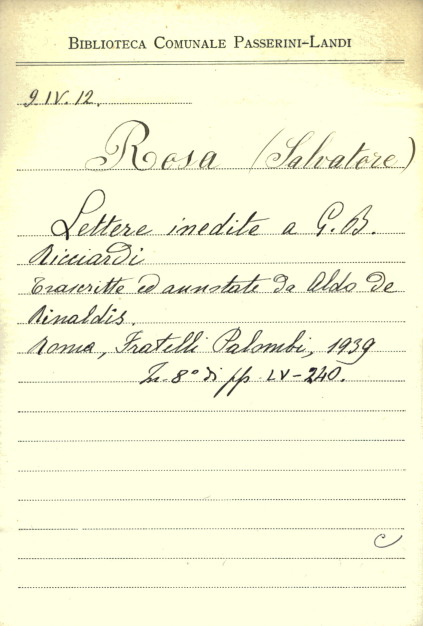 BIBLIOTECA COMUNALE PASSERINI-LANDI
9.IV.12.
Rosa (Salvatore)
Lettere inedite a G. B.
Ricciardi
Trascritte ed annotate da Aldo de
Rinaldis.
Roma, Fratelli Palombi, 1939
In-8° di pp. LV-240.
C